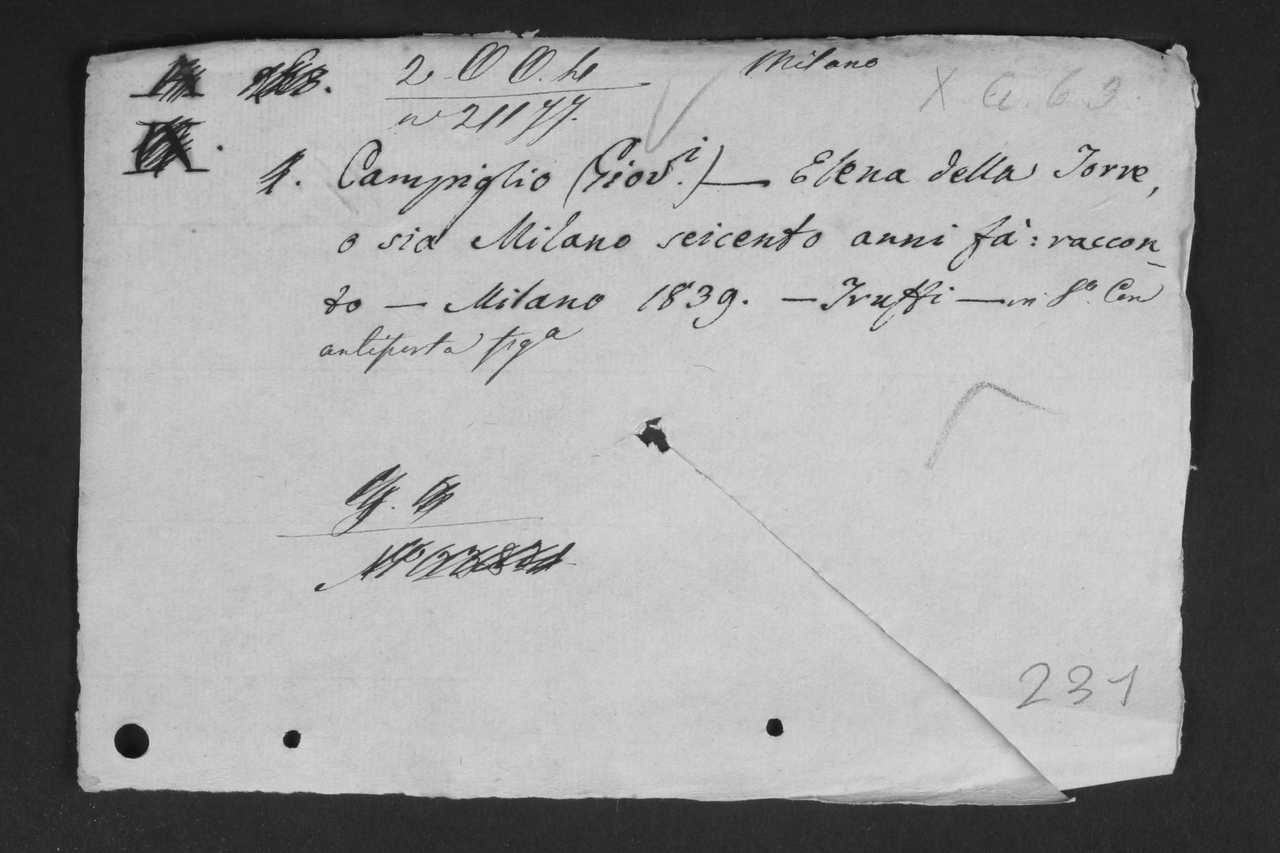 2 OO. h
Milano
X a. 6 3.
n 21177.
1. Campiglio (Giov.i) — Elena della Torre,
o sia Milano seicento anni fà: raccon-
to — Milano 1839. — Truffi — in 8.o Con
antiporta figa
231